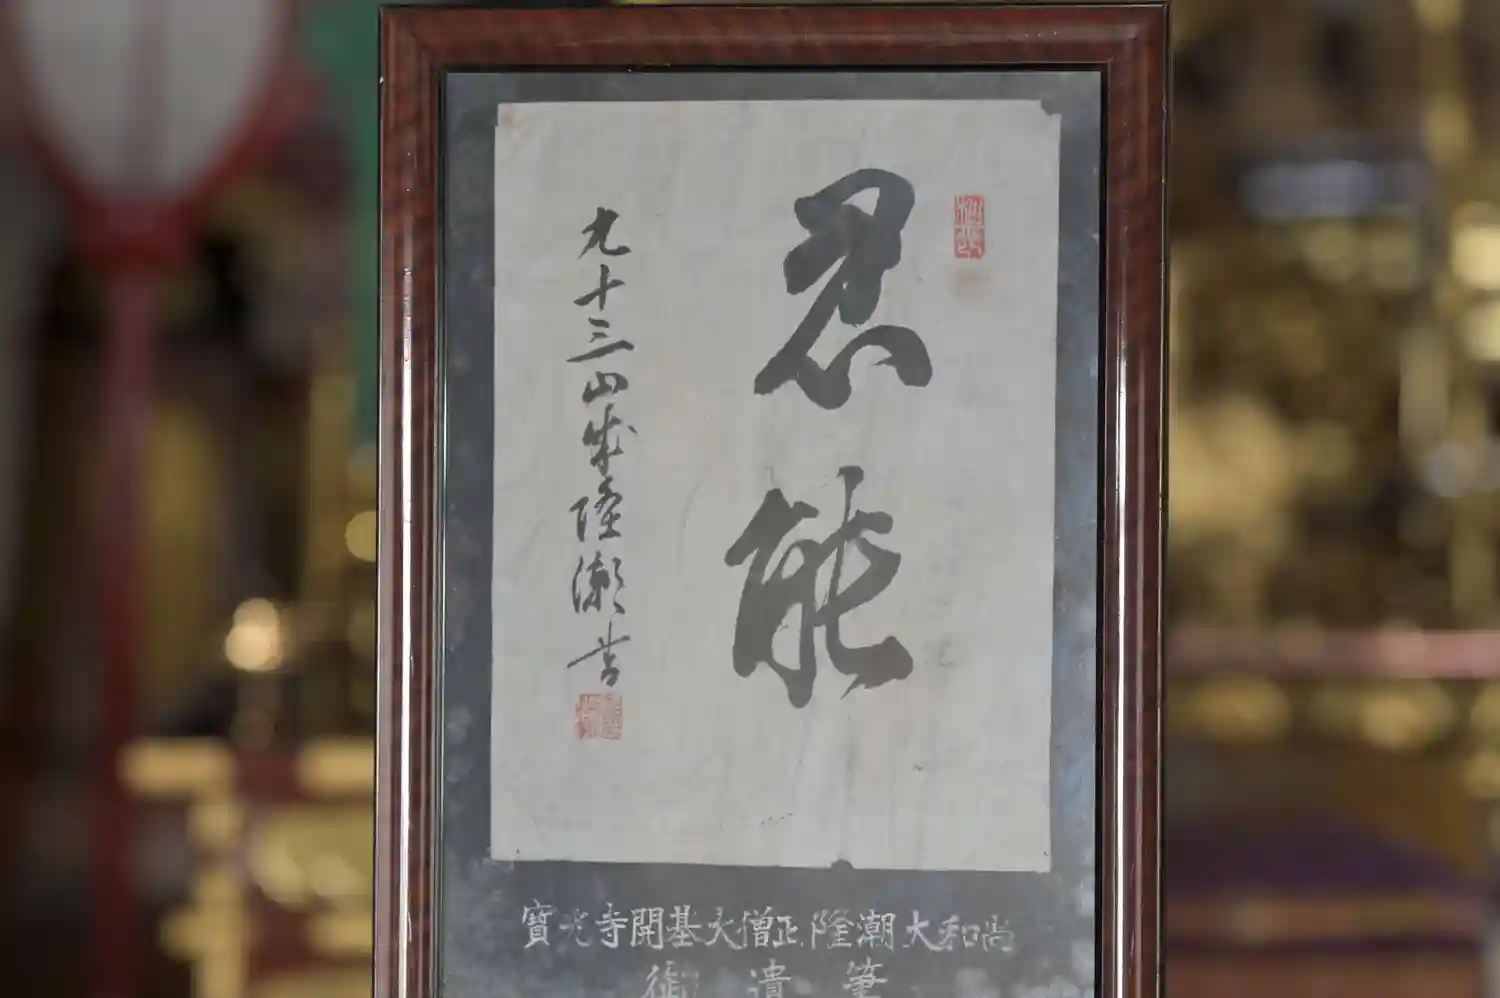 忍能
九十三山隆潮書
寶光寺開基大僧正隆潮大和尚
御遺筆